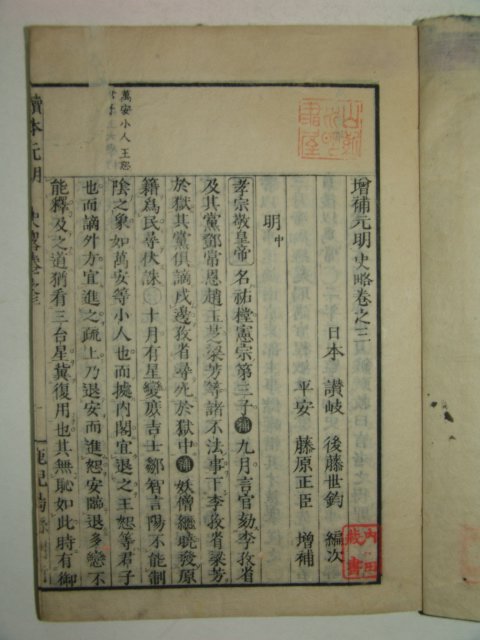 增補元明史略卷之三
日本 讃岐 後藤世鈞 編次
平安 藤原正臣 增補
明中
孝宗敬皇帝名祐樘憲宗第三子補九月言官劾李孜省
及其黨鄧常恩趙玉芝梁芳等諸不法事下李孜省梁芳
於獄其黨俱謫戍邊孜省尋死於獄中補妖僧繼曉發原
籍為民尋伏誅 十月有星變庶吉士鄒智言陽不能制
陰之象如萬安等小人也而據內閣宜退之王恕等君子
也而謫外方宜進之疏上乃退安而進恕安臨退多戀不
能釋及之道猶看三台星冀復用也其無恥如此時有御
萬安小人王恕
讀本元明 史略卷之三
內田
藏書